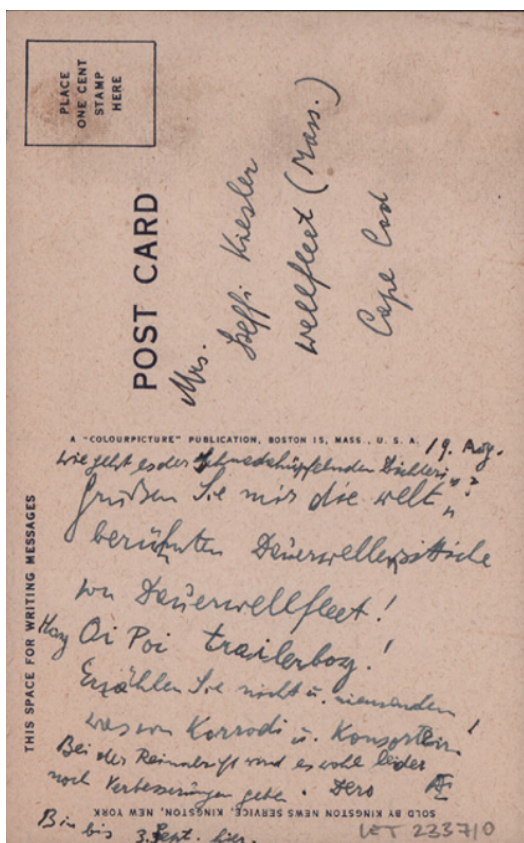 PLACE
ONE CENT
STAMP
HERE
POST CARD
Mrs.
Steffi Kiesler
Wellfleet (Mass.)
Cape Cod
A "COLOURPICTURE" PUBLICATION, BOSTON 15, MASS., U. S. A.
19. Aug.
Wie geht es der schnadahüpfelnden Dichterin?
Grüßen Sie mir die welt-
berühmten Dauerwellensittiche
von Dauerwellfleet!
Oi Poi trailerboy!
Erzählen Sie nicht u. niemandem
was von Korrodi u. Konsorten!
Bei der Reinschrift wird es wohl leider
noch Verbesserungen geben. Dero
Bin bis 3. Sept. hier.
THIS SPACE FOR WRITING MESSAGES
SOLD BY KINGSTON NEWS SERVICE, KINGSTON, NEW YORK
LET 2337/0